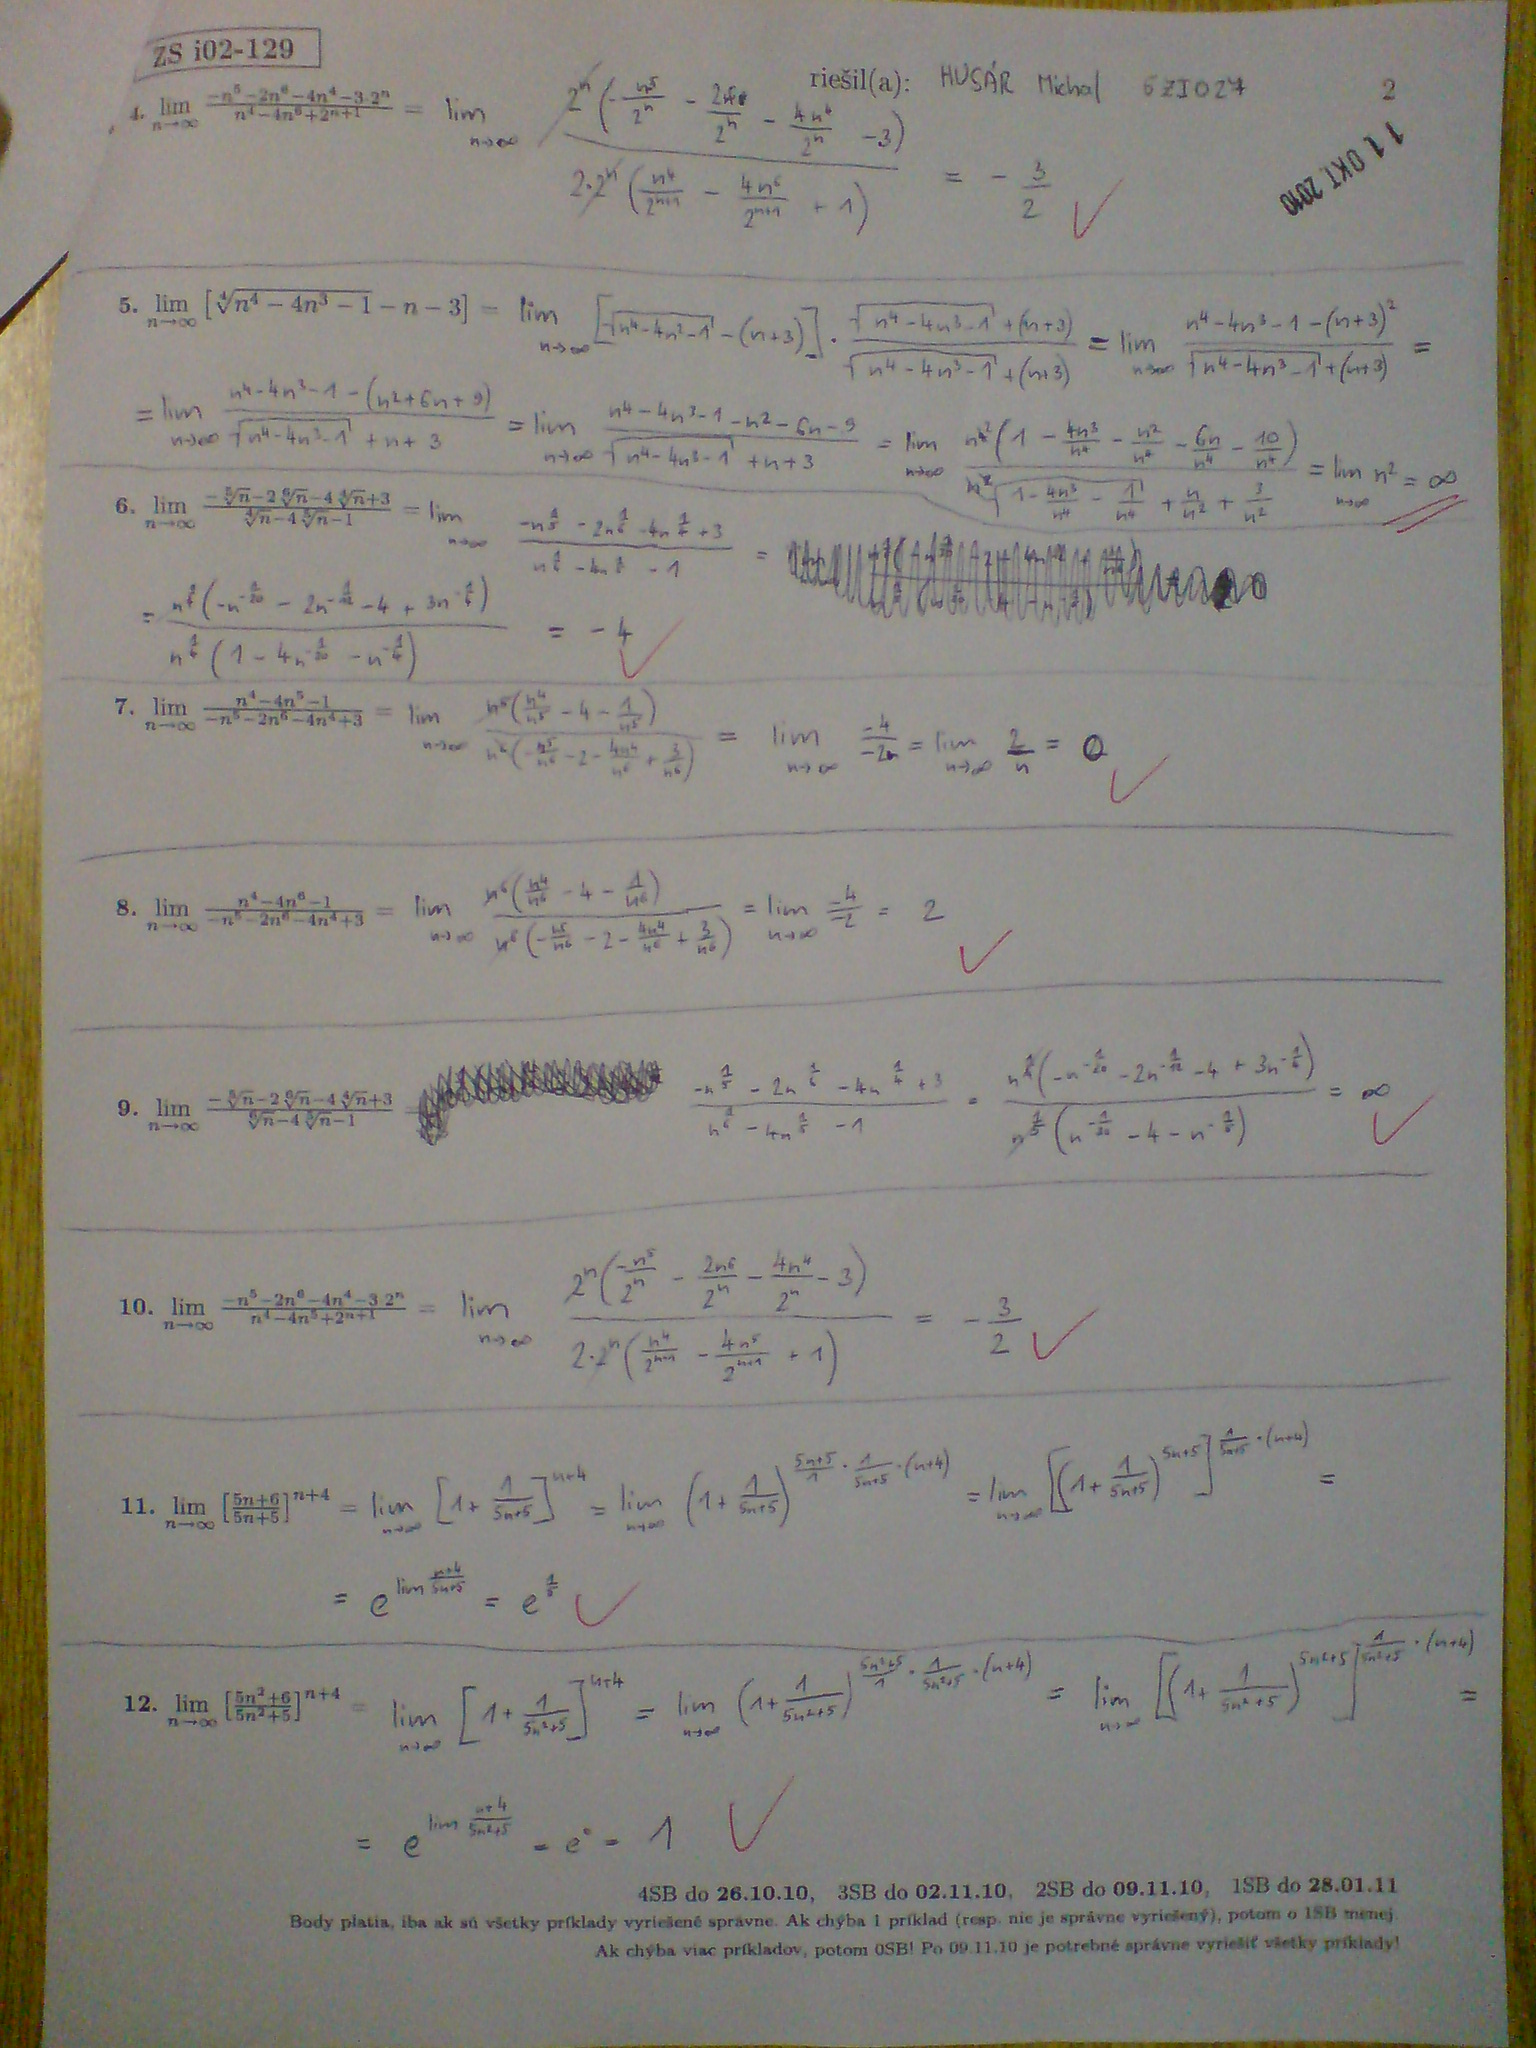 ZS i02-129
riešil(a): HUSÁR Michal 5ZI027 2
11 OKT. 2010
4. lim n→∞ (−n⁵−2n⁶−4n⁴−3·2ⁿ)/(n⁴−4n⁶+2ⁿ⁺¹) = lim n→∞ 2ⁿ(−n⁵/2ⁿ − 2n⁶/2ⁿ − 4n⁴/2ⁿ − 3)/(2·2ⁿ(n⁴/2ⁿ⁺¹ − 4n⁶/2ⁿ⁺¹ + 1)) = −3/2
5. lim n→∞ [∜(n⁴−4n³−1) − n − 3] = lim n→∞ [√(n⁴−4n³−1) − (n+3)] · (√(n⁴−4n³−1) + (n+3))/(√(n⁴−4n³−1) + (n+3)) = lim n→∞ (n⁴−4n³−1−(n+3)²)/(√(n⁴−4n³−1) + (n+3)) =
= lim n→∞ (n⁴−4n³−1−(n²+6n+9))/(√(n⁴−4n³−1) + n + 3) = lim n→∞ (n⁴−4n³−1−n²−6n−9)/(√(n⁴−4n³−1) + n + 3) = lim n→∞ n⁴(1 − 4n³/n⁴ − n²/n⁴ − 6n/n⁴ − 10/n⁴)/(n²√(1 − 4n³/n⁴ − 1/n⁴) + n/n² + 3/n²) = lim n→∞ n² = ∞
6. lim n→∞ (−⁵√n−2⁶√n−4⁴√n+3)/(⁴√n−4⁵√n−1) = lim n→∞ (−n^(1/5) − 2n^(1/6) − 4n^(1/4) + 3)/(n^(1/4) − 4n^(1/5) − 1) =
= n^(1/4)(−n^(−1/20) − 2n^(−1/12) − 4 + 3n^(−1/4))/(n^(1/4)(1 − 4n^(−1/20) − n^(−1/4))) = −4
7. lim n→∞ (n⁴−4n⁵−1)/(−n⁵−2n⁶−4n⁴+3) = lim n→∞ n⁵(n⁴/n⁵ − 4 − 1/n⁵)/(n⁶(−n⁵/n⁶ − 2 − 4n⁴/n⁶ + 3/n⁶)) = lim n→∞ −4/−2n = lim n→∞ 2/n = 0
8. lim n→∞ (n⁴−4n⁶−1)/(−n⁵−2n⁶−4n⁴+3) = lim n→∞ n⁶(n⁴/n⁶ − 4 − 1/n⁶)/(n⁶(−n⁵/n⁶ − 2 − 4n⁴/n⁶ + 3/n⁶)) = lim n→∞ −4/−2 = 2
9. lim n→∞ (−⁵√n−2⁶√n−4⁴√n+3)/(⁶√n−4⁵√n−1) (−n^(1/5) − 2n^(1/6) − 4n^(1/4) + 3)/(n^(1/6) − 4n^(1/5) − 1) = n^(1/4)(−n^(−1/20) − 2n^(−1/12) − 4 + 3n^(−1/4))/(n^(1/5)(n^(−1/30) − 4 − n^(−1/5))) = ∞
10. lim n→∞ (−n⁵−2n⁶−4n⁴−3·2ⁿ)/(n⁴−4n⁵+2ⁿ⁺¹) = lim n→∞ 2ⁿ(−n⁵/2ⁿ − 2n⁶/2ⁿ − 4n⁴/2ⁿ − 3)/(2·2ⁿ(n⁴/2ⁿ⁺¹ − 4n⁵/2ⁿ⁺¹ + 1)) = −3/2
11. lim n→∞ [(5n+6)/(5n+5)]^(n+4) = lim n→∞ [1 + 1/(5n+5)]^(n+4) = lim n→∞ (1 + 1/(5n+5))^((5n+5)/1 · 1/(5n+5) · (n+4)) = lim n→∞ [(1 + 1/(5n+5))^(5n+5)]^(1/(5n+5) · (n+4)) =
= e^(lim (n+4)/(5n+5)) = e^(1/5)
12. lim n→∞ [(5n²+6)/(5n²+5)]^(n+4) = lim n→∞ [1 + 1/(5n²+5)]^(n+4) = lim n→∞ (1 + 1/(5n²+5))^((5n²+5)/1 · 1/(5n²+5) · (n+4)) = lim n→∞ [(1 + 1/(5n²+5))^(5n²+5)]^(1/(5n²+5) · (n+4)) =
= e^(lim (n+4)/(5n²+5)) = e⁰ = 1
4SB do 26.10.10, 3SB do 02.11.10, 2SB do 09.11.10, 1SB do 28.01.11
Body platia, iba ak sú všetky príklady vyriešené správne. Ak chýba 1 príklad (resp. nie je správne vyriešený), potom o 1SB menej.
Ak chýba viac príkladov, potom 0SB! Po 09.11.10 je potrebné správne vyriešiť všetky príklady!